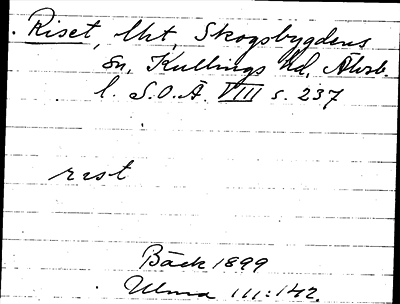 Riset, lht, Skogsbygdens
sn, Kullings hd, Älvsb.
l. S.O.Ä. VIII s. 237
rest
Bäck 1899
Ulma 111:142.